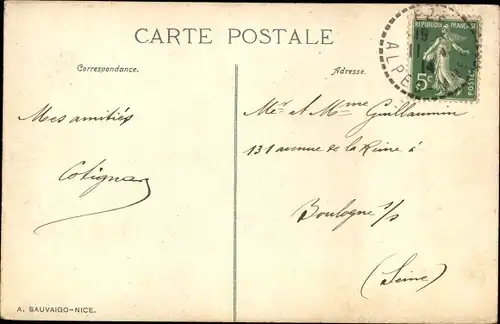 CARTE POSTALE
Correspondance.
Adresse.
REPUBLIQUE FRANÇAISE
5c
19
ALPE
Mes amitiés
Cotignac
Mer et Mme Guillaumin
131 avenue de la Reine à
Boulogne s/s
(Seine)
A. SAUVAIGO-NICE.